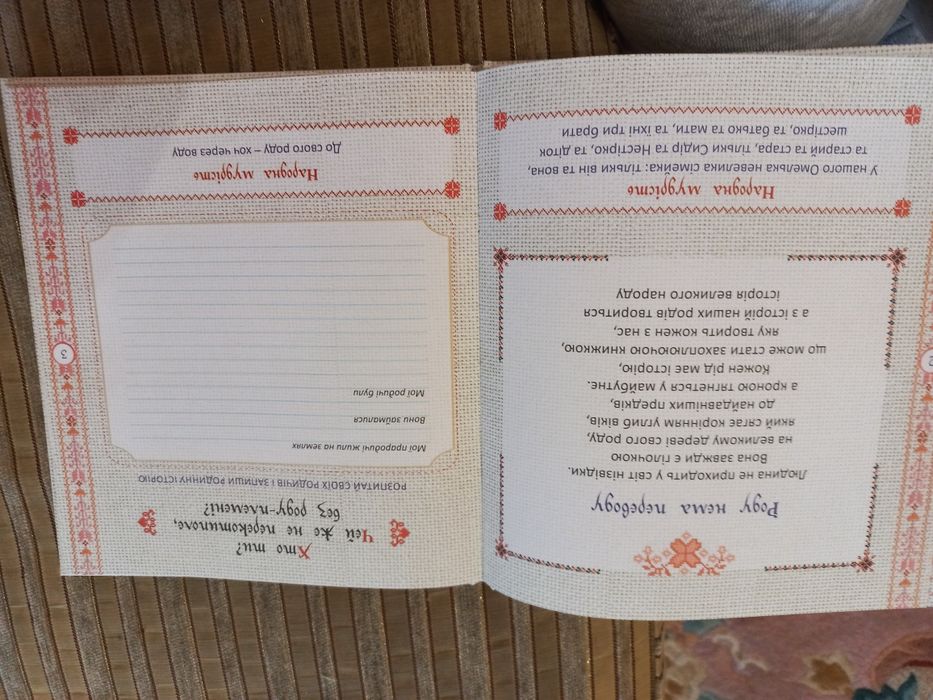 Роду нема переводу
Людина не приходить у світ нізвідки.
Вона завжди є гілочкою
на великому дереві свого роду,
який сягає корінням углиб віків,
до найдавніших предків,
а кроною тягнеться у майбутне.
Кожен рід має історію,
що може стати захоплюючою книжкою,
яку творить кожен з нас,
а з історій наших родів твориться
історія великого народу
Народна мудрість
У нашого Омелька невелика сімейка: тільки він та вона,
та старий та стара, тільки Сидір та Нестірко, та діток
шестірко, та батько та мати, та їхні три брати
2
Хто ти?
Чей же не перекотиполе,
без роду-племені?
РОЗПИТАЙ СВОЇХ РОДИЧІВ І ЗАПИШИ РОДИННУ ІСТОРІЮ
Мої прародичі жили на землях
Вони займалися
Мої родичі були
Народна мудрість
До свого роду – хоч через воду
3